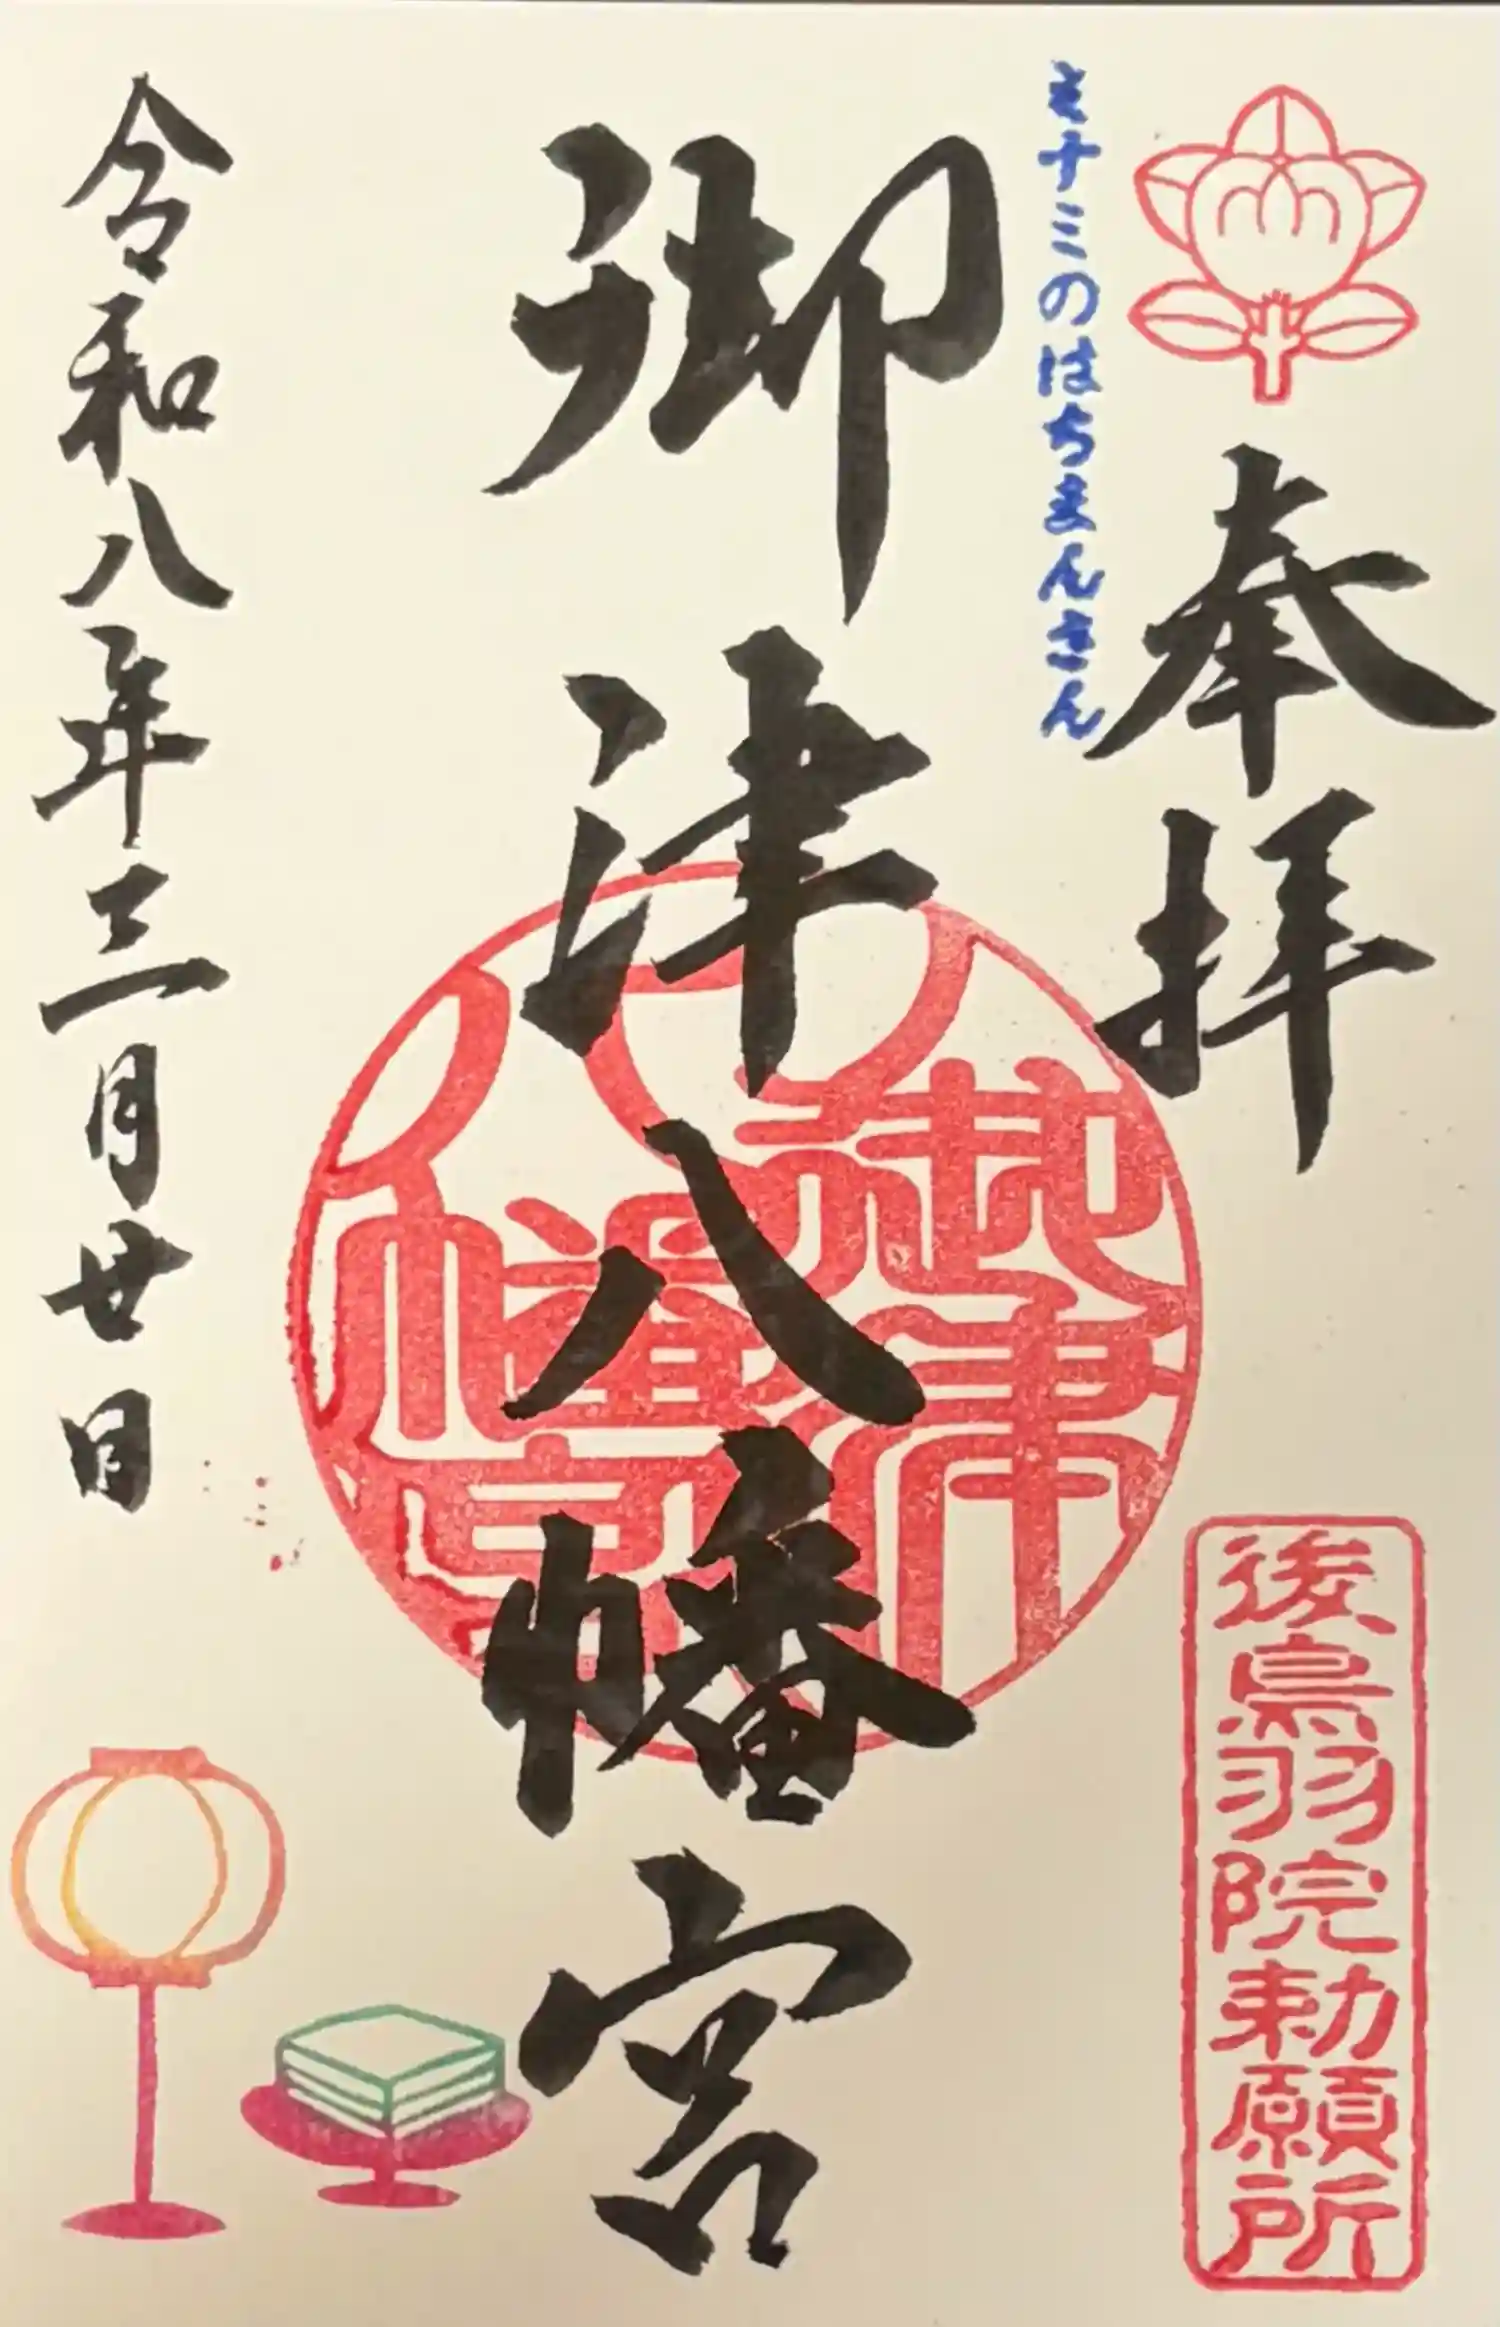 奉拝
後鳥羽院勅願所
ミナミのはちまんさん
御津八幡宮
御津
八幡宮
令和八年三月廿日